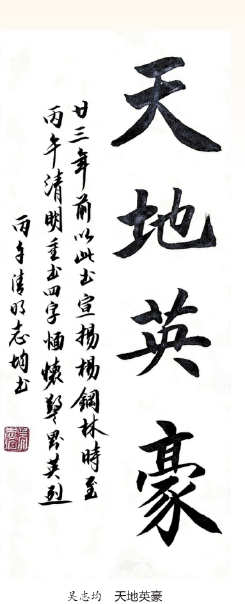 天地英豪
廿三年前以此书宣扬杨钢林时至
丙午清明重书四字缅怀警界英烈
丙午清明志均书
吴志均 天地英豪